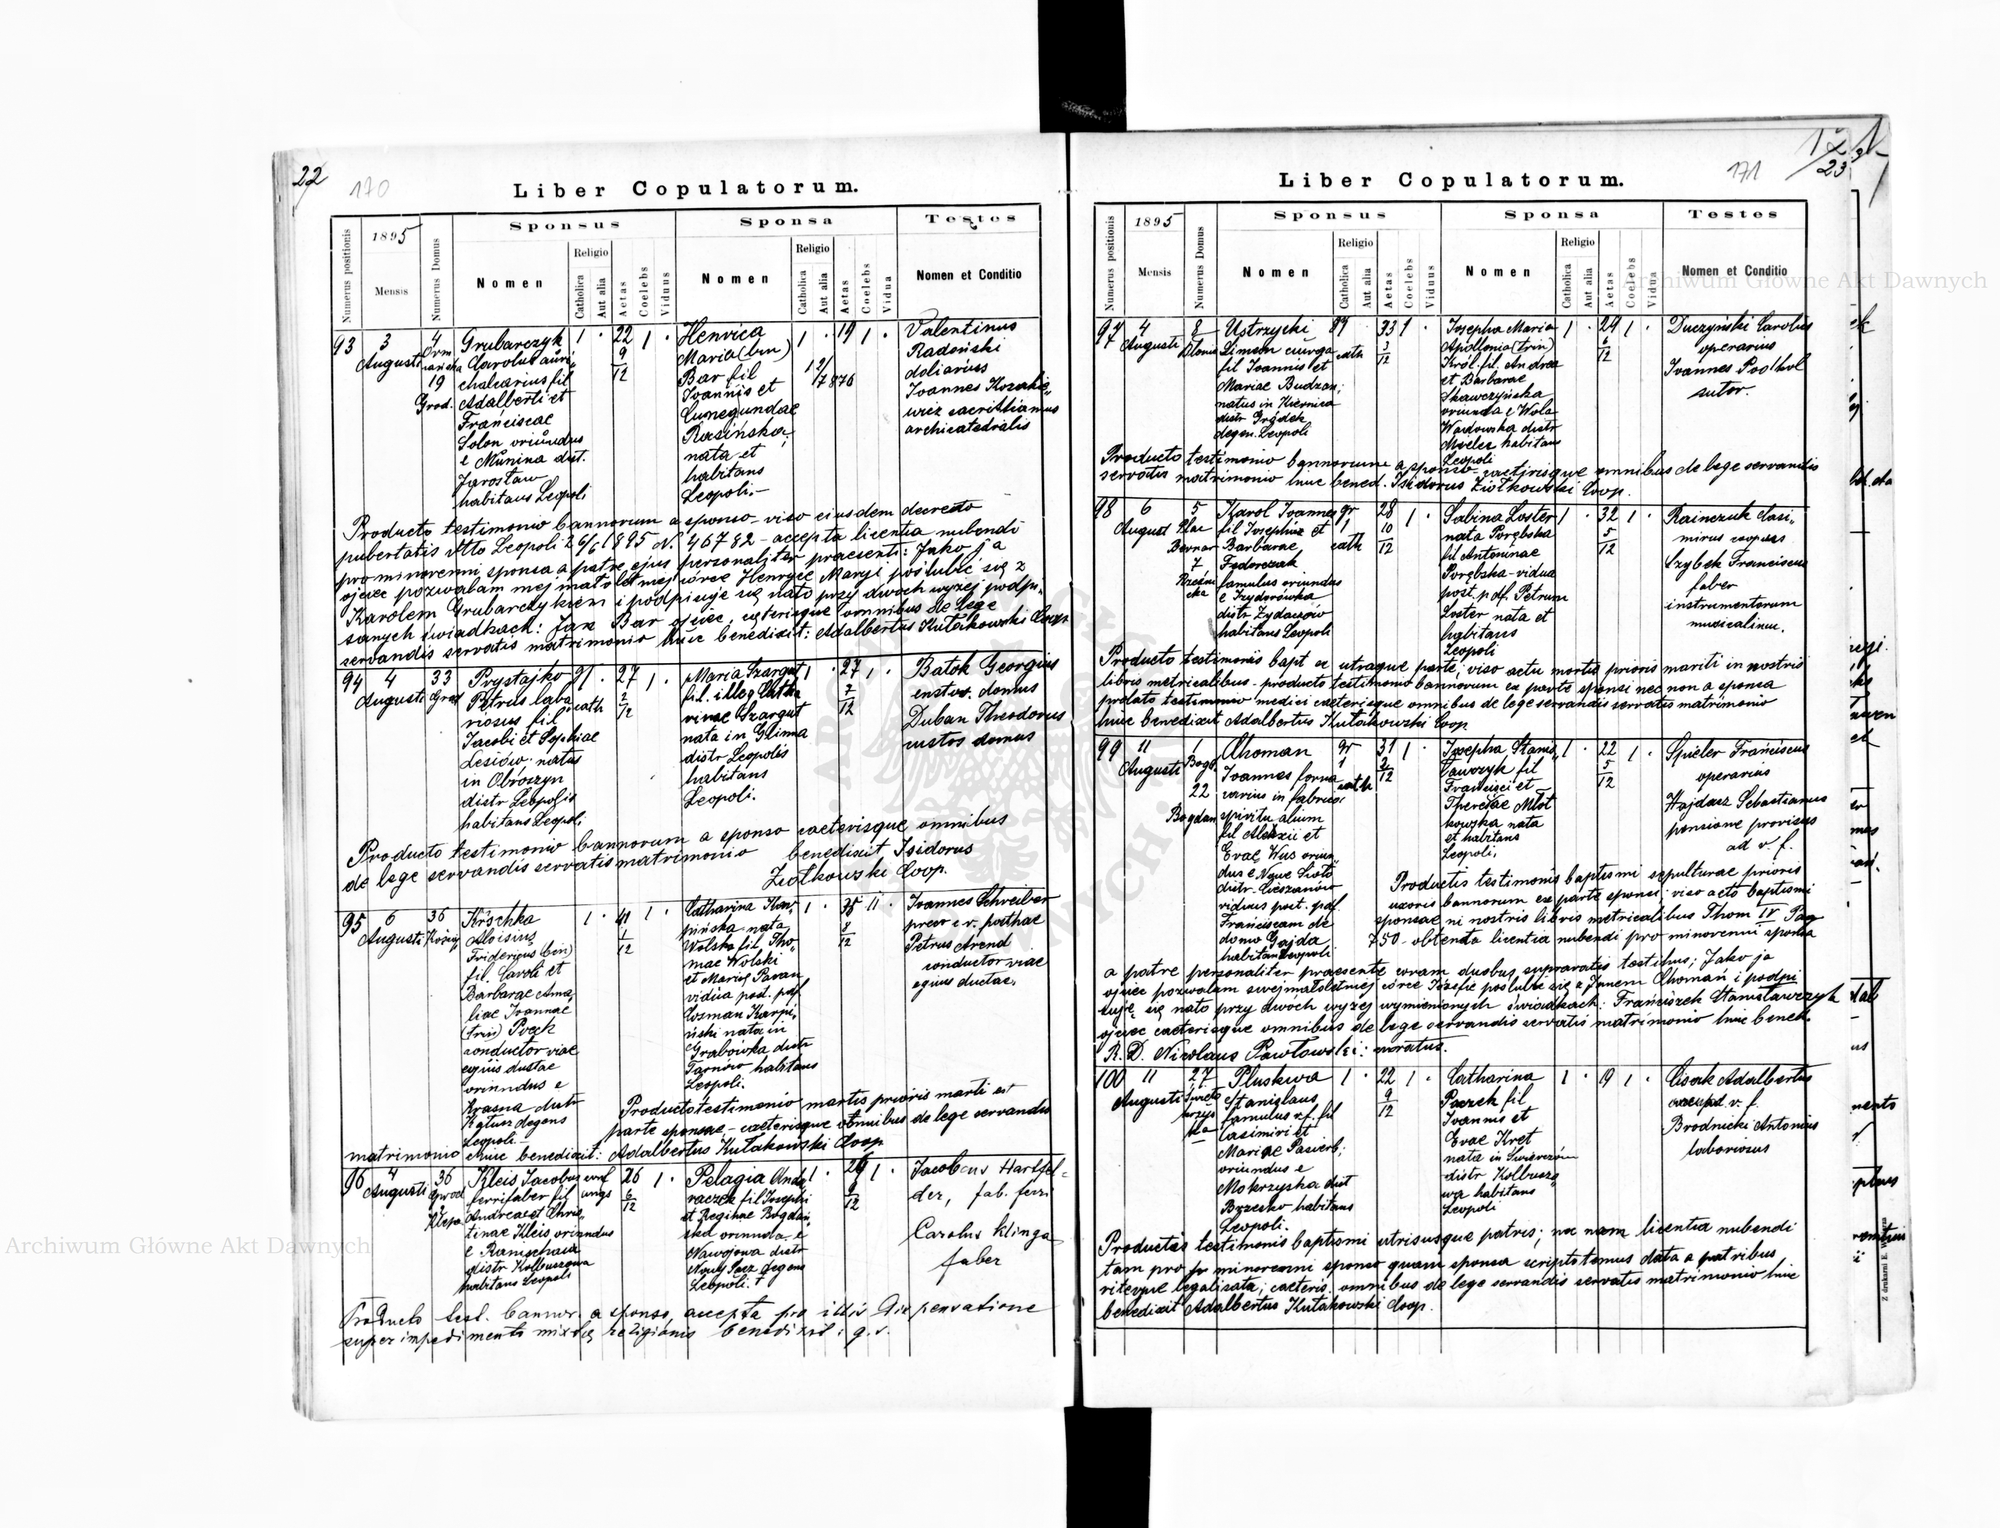 22
170
Liber Copulatorum.
Numerus positionis
1895
Mensis
Numerus Domus
Sponsus
Nomen
Religio
Catholica
Aut alia
Aetas
Coelebs
Viduus
Sponsa
Nomen
Religio
Catholica
Aut alia
Aetas
Coelebs
Vidua
Testes
Nomen et Conditio
93
3
Augusti
4
Orm
19
Grod.
Grubarczyk
Carolus auri
chalcarius fil
Adalberti et
Franciscae
Solon oriundus
e Munina dist.
Jarosław
habitans Leopoli
1 . 22 9/12 1 .
Henrica
Maria (bin)
Bar fil
Ioannis et
Cunegundae
Rasińska,
nata et
habitans
Leopoli.-
1 . 19 1 .
Valentinus
Radoński
doliarius
Ioannes Kozakie
wicz sacristianus
archicatedralis
Producto testimonio bannorum a sponso - viso eiusdem decreto
pubertatis dtto Leopoli 26/6 1895 N. 46782 - accepta licentia nubendi
pro minorenni sponsa a patre ejus personaliter praesenti: Jako ja
ojciec pozwalam mej małoletniej córce Henryce Maryi poślubić się z
Karolem Grubarczykiem i podpisuje się na to przy dwóch wyżej podpi-
sanych świadkach: Jan Bar ojciec, caeterisque omnibus de lege
servandis servatis matrimonio huic benedixit: Adalbertus Kułakowski Coop
94
4
Augusti
33
Grod
Prystajko
Petrus labo
riosus fil
Jacobi et Sophiae
Lesiów natus
in Obroszyn
distr Leopolis
habitans Leopoli
gr . cath 27 2/12 1 .
Maria Szargut
fil. illeg Catha
rinae Szargut
nata in Glinna
distr Leopolis
habitans
Leopoli.
1 . 27 7/12 1 .
Batok Georgius
custos domus
Duban Theodorus
custos domus
Producto testimonio bannorum a sponso caeterisque omnibus
de lege servandis servatis matrimonio benedixit Isidorus
Ziołkowski Coop.
95
6
Augusti
36
Krischka
Aloisius
Fridericus (bin)
fil. Caroli et
Barbarae Ama
liae Ioannae
(trin) Pvach
conductor viae
equis ductae
oriundus e
Krasna distr
Kałusz degens
Leopoli-
1 . 41 1/12 1 .
Catharina Kar
pińska nata
Wolska fil. Tho
mae Wolski
et Mariae Baran
vidua post. pdf
Cosman Karpi
ński nata in
Grabówka distr
Tarnów habitans
Leopoli.
1 . 35 8/12
Ioannes Schreiber
Petrus Arend
conductor viae
equis ductae.
Producto testimonio mortis prioris mariti ex
parte sponsae, - caeterisque omnibus de lege servandis
matrimonio huic benedixit: Adalbertus Kułakowski Coop
96
4
Augusti
36
Kleis Jacobus
ferrifaber fil
Andreae et Chris,
tinae Kleis oriundus
e Ranischau
distr Kolbuszowa
habitans Leopoli
26 6/12 1 .
Pelagia Anda
raczek fil Josephi
et Reginae Bogdań
ska oriunda e
Nawojowa distr
Nowy Sącz degens
Leopoli.
1 . 24 9/12 1 .
Jacobus Hartfel-
der, fab. ferri
Carolus Klinga
faber
Producto test. bannor. a sponso, accepta pro illis dispensatione
super impedimento mixtae religionis benedixit: q. s.
171
23
Liber Copulatorum.
Numerus positionis
1895
Mensis
Numerus Domus
Sponsus
Nomen
Religio
Catholica
Aut alia
Aetas
Coelebs
Viduus
Sponsa
Nomen
Religio
Catholica
Aut alia
Aetas
Coelebs
Vidua
Testes
Nomen et Conditio
97
4
Augusti
8
Ustrzycki
Simeon auriga
fil Ioannis et
Mariae Budzan,
natus in Kiernica
distr Gródek
degen. Leopoli
gr cath 33 3/12 1 .
Josepha Maria
Apollonia (trin)
Król. fil. Andreae
et Barbarae
Skawczyńska
oriunda e Wola
Wadowska distr
Mielec habitans
Leopoli
1 . 24 6/12 1 .
Duczyński Carolus
operarius
Ioannes Podhol
sutor.
Producto testimonio bannorum a sponso - caeterisque omnibus de lege servandis
servatis matrimonio huic bened. Isidorus Ziołkowski Coop.
98
6
August
5
Plac
Bernar
7
Karol Ioannes
fil Josephi et
Barbarae
Fedorczak
famulus oriundus
e Izydorówka
distr Żydaczów
habitans Leopoli
gr cath 28 10/12 1 .
Sabina Loster
nata Porębska
fil Antoninae
Porębska - vidua
post. p. df. Petrum
Loster nata et
habitans
Leopoli
1 . 32 5/12 1 .
Rainczuk Casi,
mirus
Szybek Franciscus
faber
instrumentorum
musicalium.
Producto testimoniis bapt ex utraque parte, viso actu mortis prioris mariti in nostris
libris metricalibus - producto testimonio bannorum ex parte sponsi nec non a sponsa
prolato testimonio medici caeterisque omnibus de lege servandis servatis matrimonio
huic benedixit Adalbertus Kułakowski Coop
99
11
Augusti
1
Bogd
22
Bogdan
Choman
Ioannes forna
carius in fabrica
spiritualium
fil Alexii et
Evae Wus oriun
dus e Nowe Sioło
distr. Cieszanów
viduus post. pdf.
Franciscam de
domo Gajda
habitans Leopoli
gr cath 31 2/12 1 .
Josepha Stanis,
ławczyk fil
Francisci et
Theresae Młot
kowska nata
et habitans
Leopoli,
1 . 22 5/12 1 .
Spieler Franciscus
operarius
Hajdasz Sebastianus
pensione provisus
ad v. f.
Productis testimoniis baptismi sepulturae prioris
uxoris bannorum ex parte sponsi; viso acto baptismi
sponsae ni nostris libris metricalibus Thom IV Pag
750 - obtenta licentia nubendi pro minorenni sponsa
a patre personaliter praesente coram duobus supravocatis testibus; Jako ja
ojciec pozwalam swej małoletniej córce Józefie poślubić się z Janem Chomań i podpi
suję się na to przy dwóch wyżej wymienionych świadkach: Franciszek Stanisławczyk
ojciec caeterisque omnibus de lege servandis servatis matrimonio huic bened.
R. D. Nicolaus Pawłowski: curatus.
100
11
Augusti
27
Pluskwa
Stanislaus
famulus v.f. fil
Casimiri et
Mariae Pasierb;
oriundus e
Mokrzyska dist
Brzesko habitans
Leopoli.
1 . 22 9/12 1 .
Catharina
Paczek fil
Ioannis et
Evae Kret
nata in Świerczów
distr Kolbuszo
wa habitans
Leopoli
1 . 19 1 .
Cisak Adalbertus
Brodnicki Antonius
laboriosus
Productis testimonis baptismi utriusque patris; nec nam licentia nubendi
tam pro minorenni sponso quam sponsa scriptotenus data a patribus
riteque legalisata; caeteris omnibus de lege servandis servatis matrimonio huic
benedixit Adalbertus Kułakowski Coop.
Archiwum Główne Akt Dawnych
Archiwum Główne Akt Dawnych